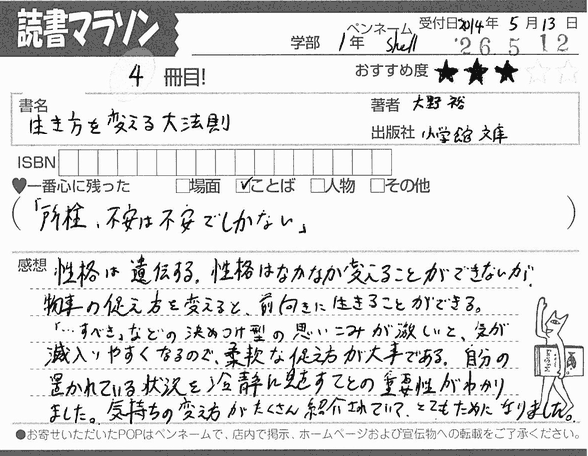 読書マラソン
ペンネーム 受付日2014年 5月13日
学部 1年 shell '26.5 12
4 冊目! おすすめ度 ★★★☆☆
書名 著者 大野裕
生き方を変える大法則 出版社 小学館文庫
ISBN
♥一番心に残った □場面 ☑ことば □人物 □その他
(「所栓、不安は不安でしかない」)
感想 性格は遺伝する。性格はなかなか変えることができないが、
物事の促え方を変えると、前向きに生きることができる。
「…すべき」などの決めつけ型の思いこみが激しいと、気が
滅入りやすくなるので、柔軟な促え方が大事である。自分の
置かれている状況を冷静に見すてとの重要性がわかり
ました。気持ちの変え方がたくさん紹介されていて、とてもためになりました。
●お寄せいただいたPOPはペンネームで、店内で掲示、ホームページおよび宣伝物への転載をご了承ください。